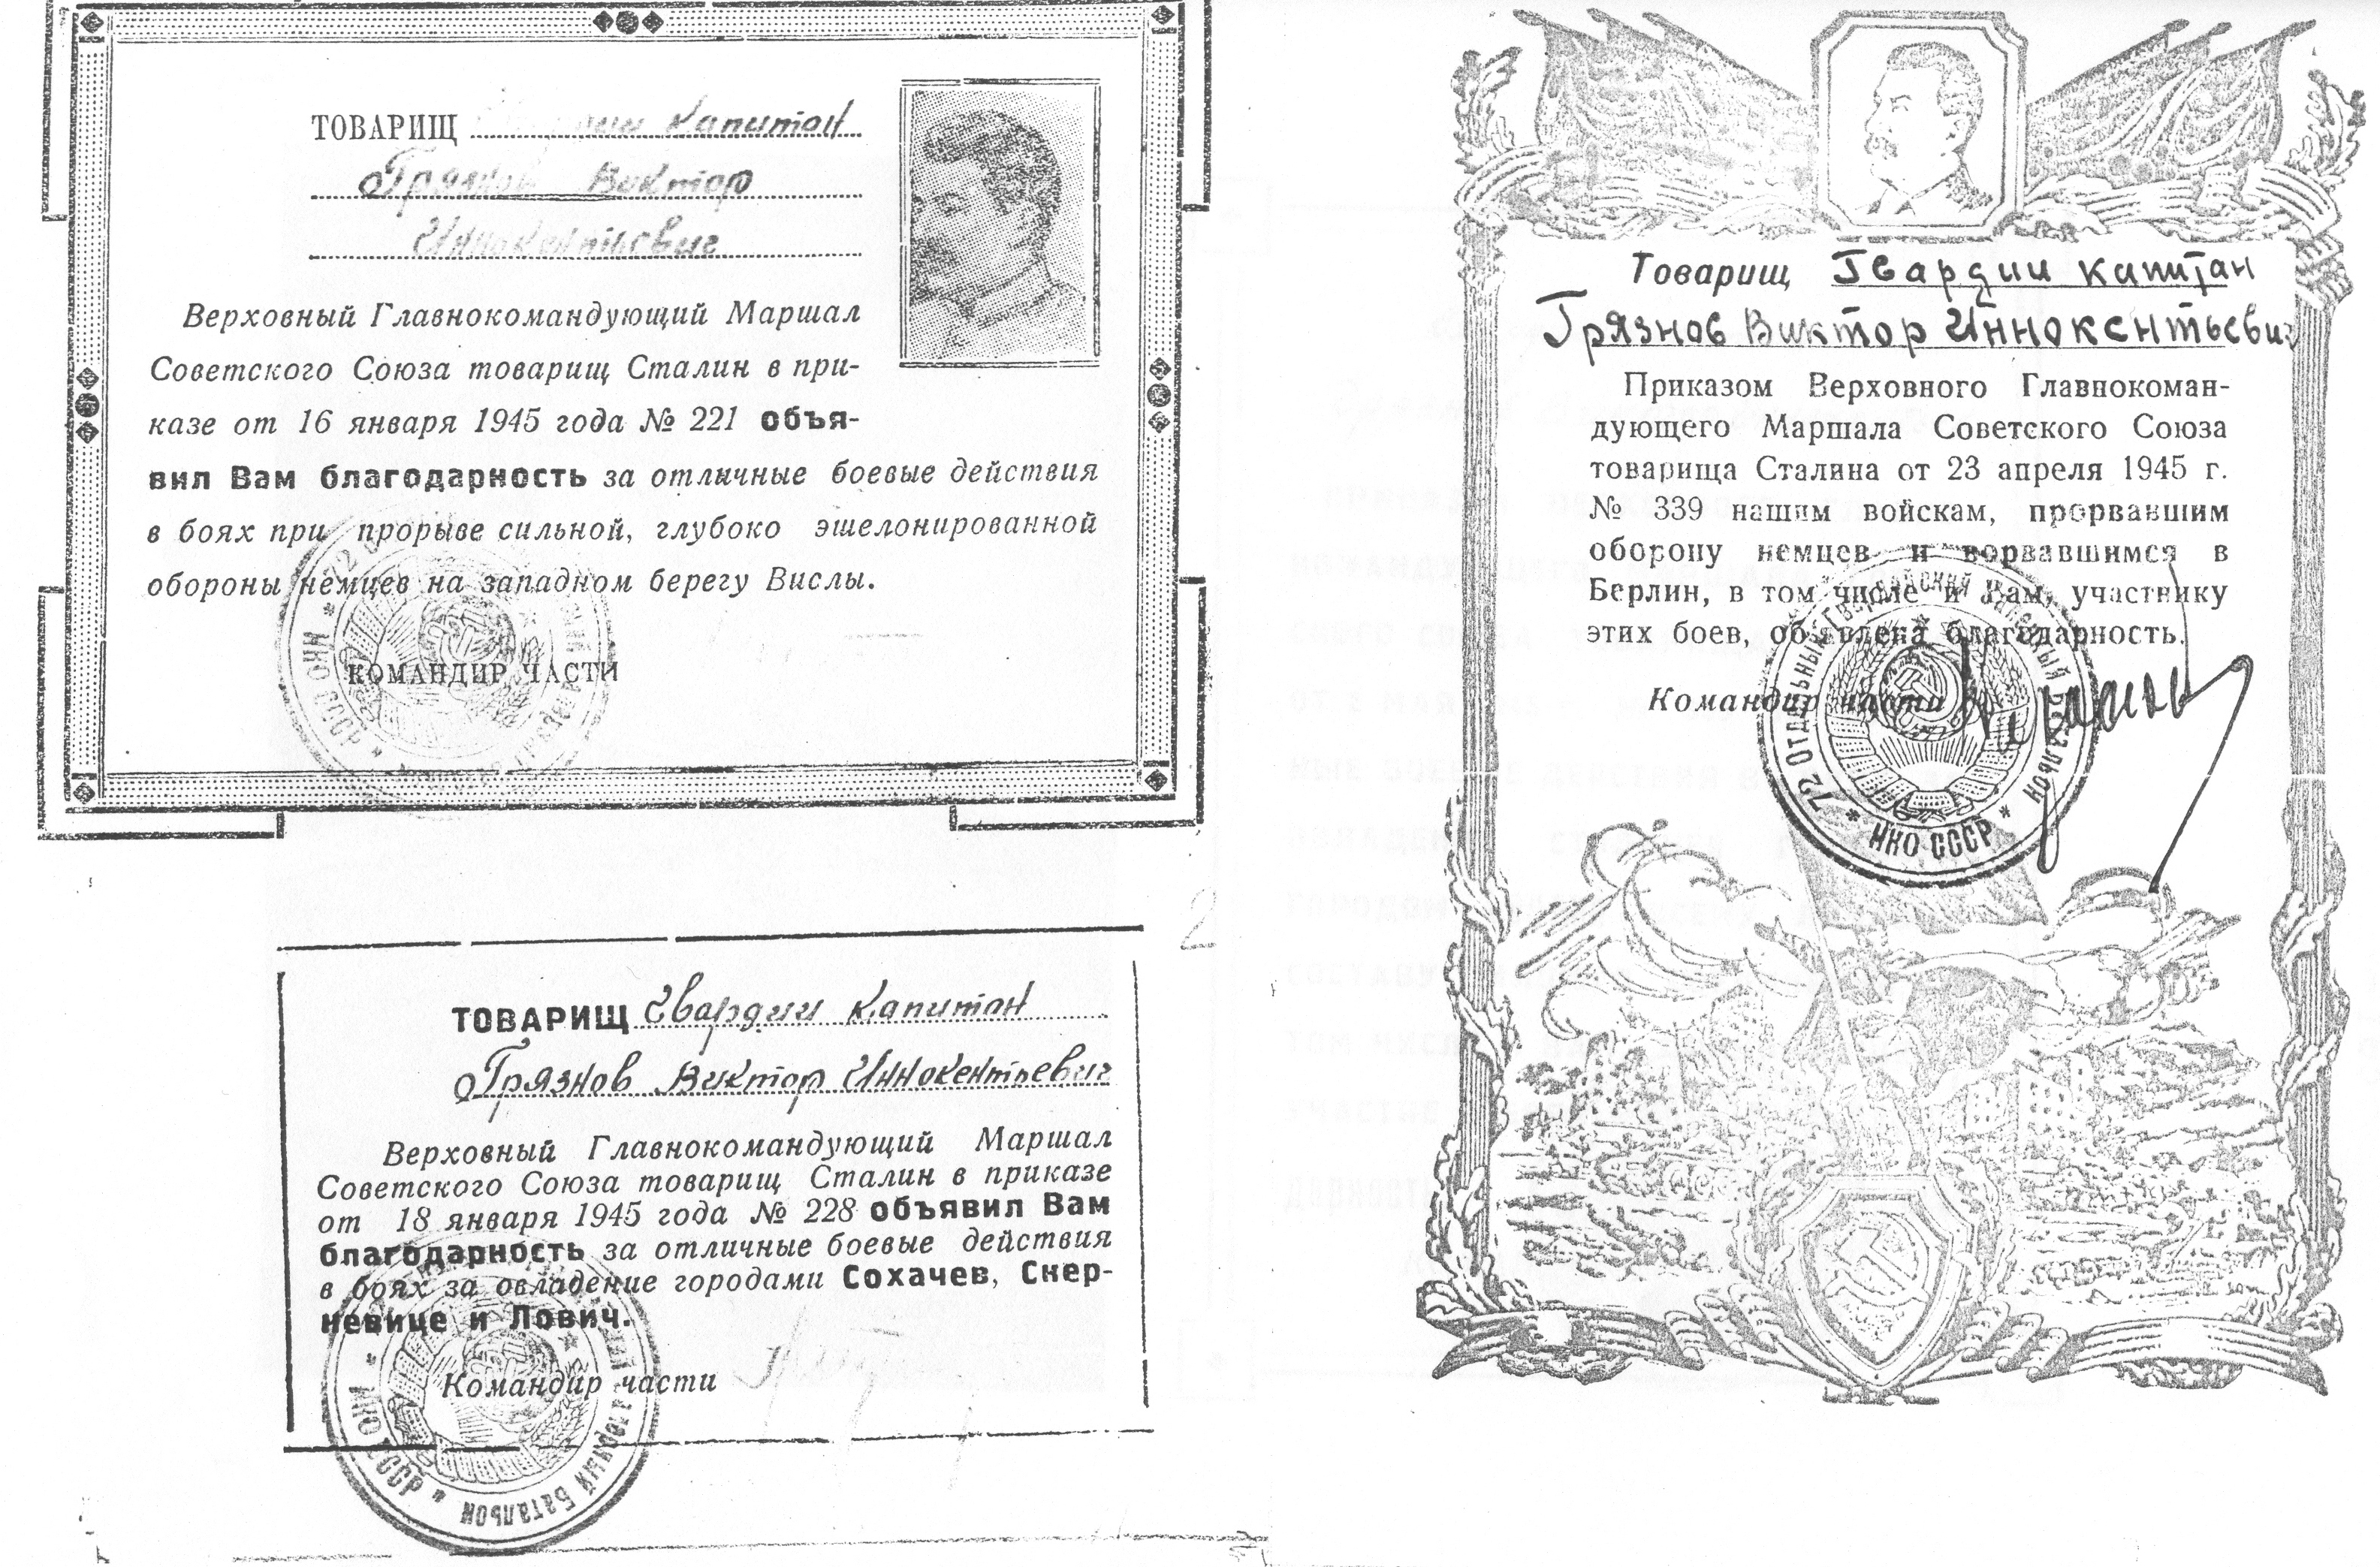 ТОВАРИЩ капитан
Грязнов Виктор
Иннокентьевич
Верховный Главнокомандующий Маршал
Советского Союза товарищ Сталин в при-
казе от 16 января 1945 года № 221 объя-
вил Вам благодарность за отличные боевые действия
в боях при прорыве сильной, глубоко эшелонированной
обороны немцев на западном берегу Вислы.
КОМАНДИР ЧАСТИ
НКО СССР
2
ТОВАРИЩ гвардии капитан
Грязнов Виктор Иннокентьевич
Верховный Главнокомандующий Маршал
Советского Союза товарищ Сталин в приказе
от 18 января 1945 года № 228 объявил Вам
благодарность за отличные боевые действия
в боях за овладение городами Сохачев, Скер-
невице и Лович.
Командир части
НКО СССР * Саперный Батальон
Товарищ Гвардии капитан
Грязнов Виктор Иннокентьевич
Приказом Верховного Главнокоман-
дующего Маршала Советского Союза
товарища Сталина от 23 апреля 1945 г.
№ 339 нашим войскам, прорвавшим
оборону немцев и ворвавшимся в
Берлин, в том числе и Вам, участнику
этих боев, объявлена благодарность.
Командир части
72 Отдельный Гвардейский Саперный Батальон * НКО СССР *